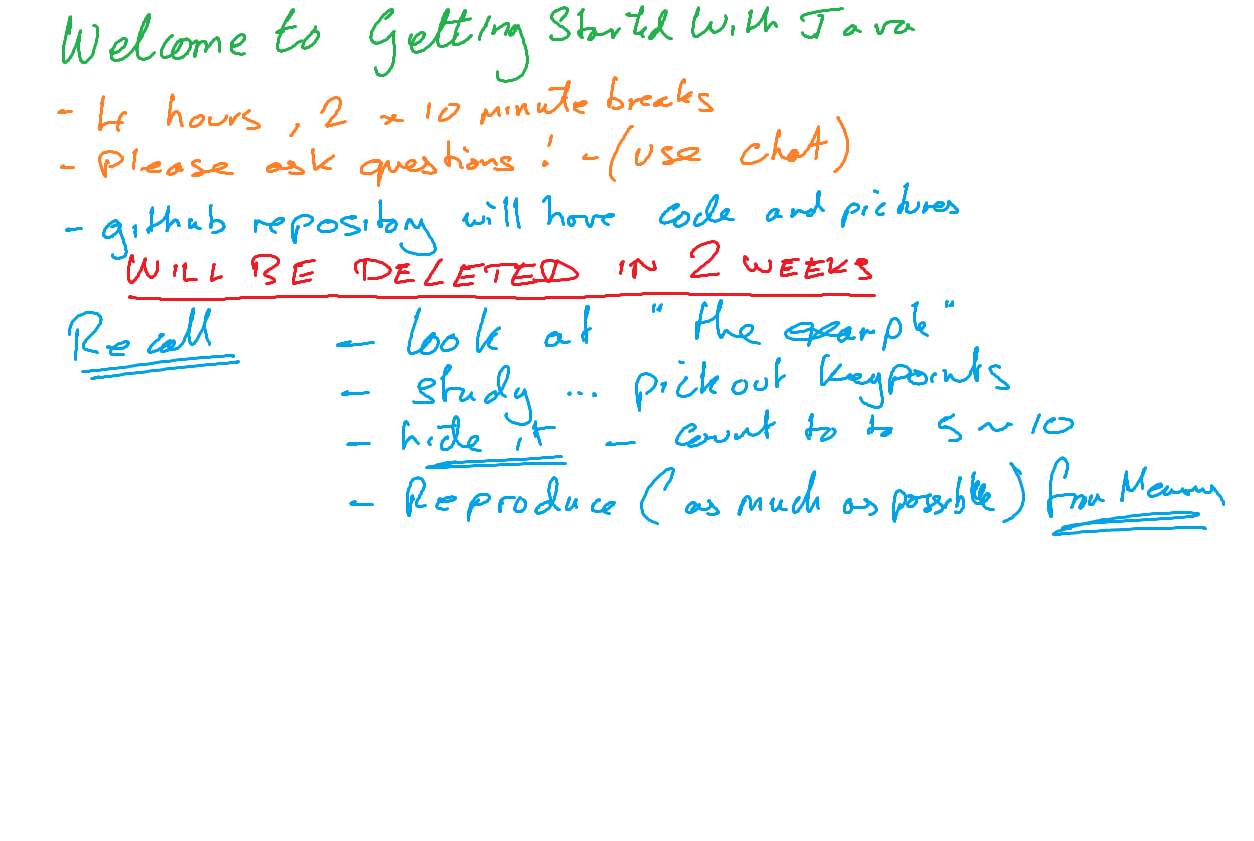 Welcome to Getting Started With Java
- 4 hours, 2 x 10 minute breaks
- Please ask questions! - (use chat)
- github repository will have code and pictures
WILL BE DELETED IN 2 WEEKS
Recall - look at "the example"
- study ... pick out key points
- hide it - count to to 5 ~ 10
- Reproduce (as much as possible) from Memory